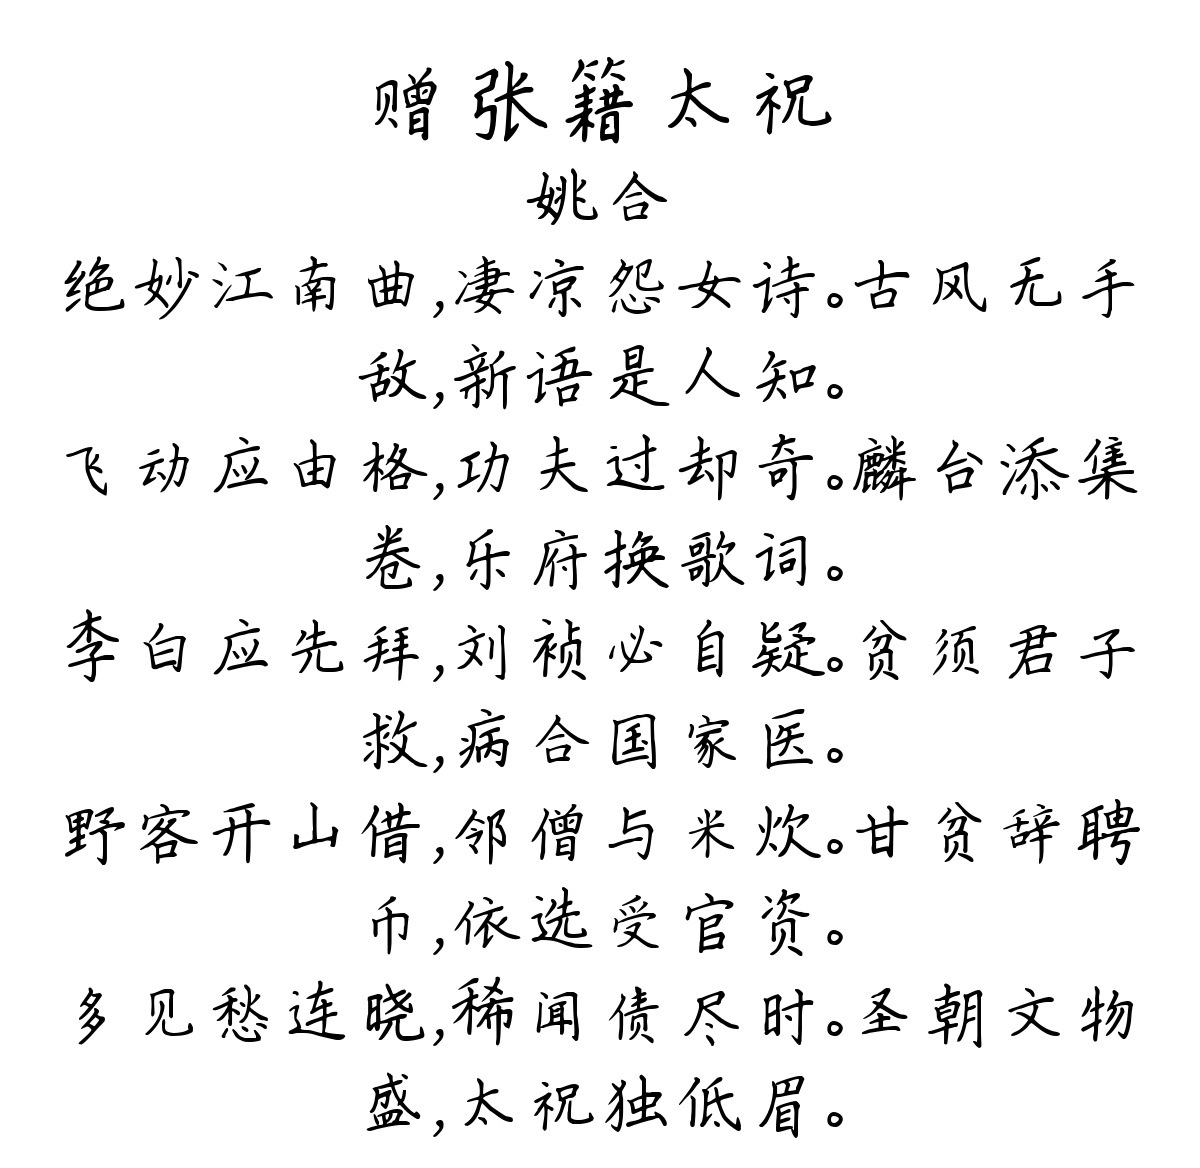 赠张籍太祝
姚合
绝妙江南曲,凄凉怨女诗。古风无手
敌,新语是人知。
飞动应由格,功夫过却奇。麟台添集
卷,乐府换歌词。
李白应先拜,刘祯必自疑。贫须君子
救,病合国家医。
野客开山借,邻僧与米炊。甘贫辞聘
币,依选受官资。
多见愁连晓,稀闻债尽时。圣朝文物
盛,太祝独低眉。